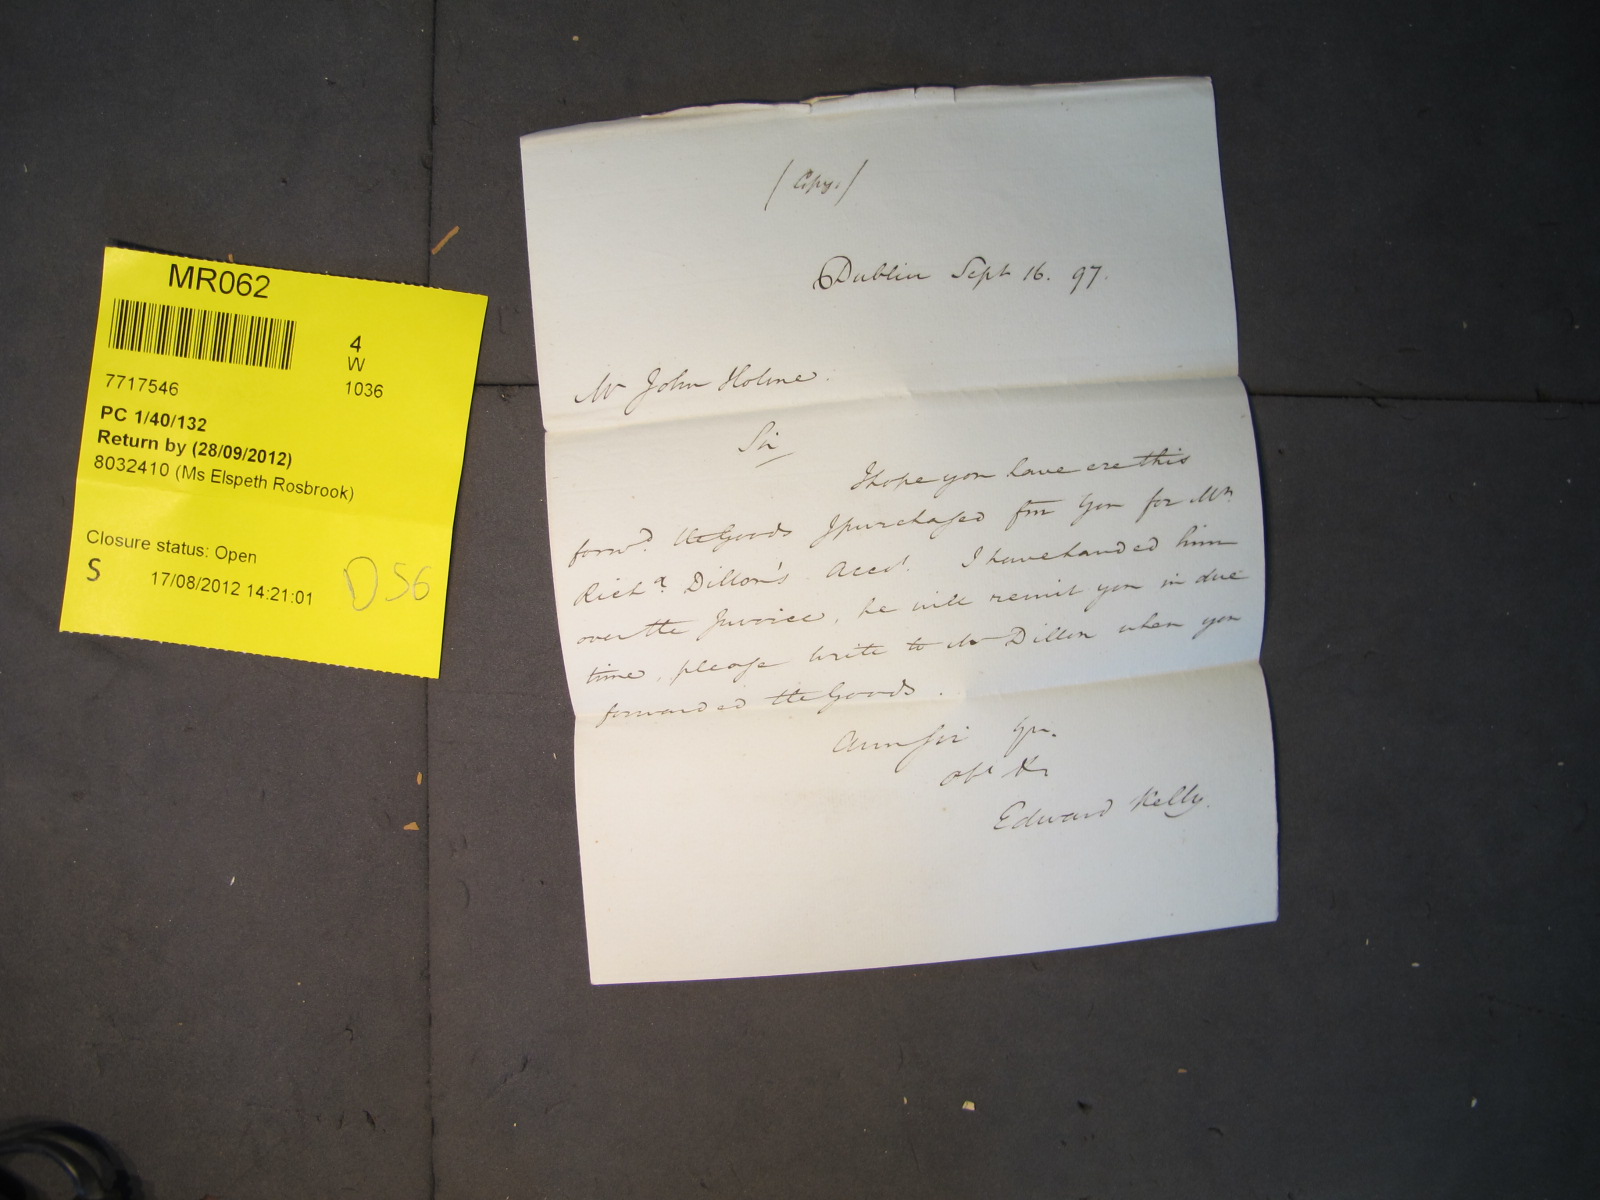 MR062
4
W
7717546
1036
PC 1/40/132
Return by (28/09/2012)
8032410 (Ms Elspeth Rosbrook)
Closure status: Open
S
17/08/2012 14:21:01
D 56
/ Copy. /
Dublin Sept 16. 97.
Mr John Holme.
Sir
I hope you have ere this
forwd. the Goods I purchased for you for Mr.
Richd. Dillon's Acct. I have handed him
over the Invoice, he will remit you in due
time, please write to Mr Dillon when you
forwarded the Goods.
I am Sir Yr.
obt
Edward Kelly.